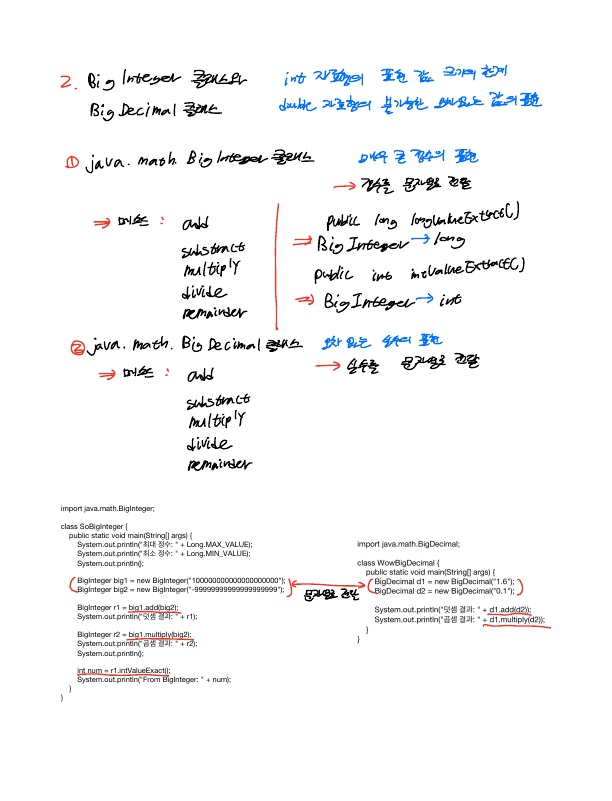 2. Big Integer 클래스와 int 자료형의 표현 값 크기의 한계
Big Decimal 클래스 double 자료형의 불가능한 오차 없는 값의 표현
① java. math. Big Integer 클래스 매우 큰 정수의 표현
→ 정수를 문자열로 전달
⇒ 메소드 : add
substract
multiply
divide
remainder
public long longValueExtact()
⇒ Big Integer → long
public int intValueExtact()
⇒ Big Integer → int
② java. math. Big Decimal 클래스 오차 없는 실수의 표현
→ 실수를 문자열로 전달
⇒ 메소드 : add
substract
multiply
divide
remainder
import java.math.BigInteger;
class SoBigInteger {
public static void main(String[] args) {
System.out.println("최대 정수: " + Long.MAX_VALUE);
System.out.println("최소 정수: " + Long.MIN_VALUE);
System.out.println();
BigInteger big1 = new BigInteger("100000000000000000000");
BigInteger big2 = new BigInteger("-99999999999999999999");
BigInteger r1 = big1.add(big2);
System.out.println("덧셈 결과: " + r1);
BigInteger r2 = big1.multiply(big2);
System.out.println("곱셈 결과: " + r2);
System.out.println();
int num = r1.intValueExact();
System.out.println("From BigInteger: " + num);
}
}
문자열로 전달
import java.math.BigDecimal;
class WowBigDecimal {
public static void main(String[] args) {
BigDecimal d1 = new BigDecimal("1.6");
BigDecimal d2 = new BigDecimal("0.1");
System.out.println("덧셈 결과: " + d1.add(d2));
System.out.println("곱셈 결과: " + d1.multiply(d2));
}
}